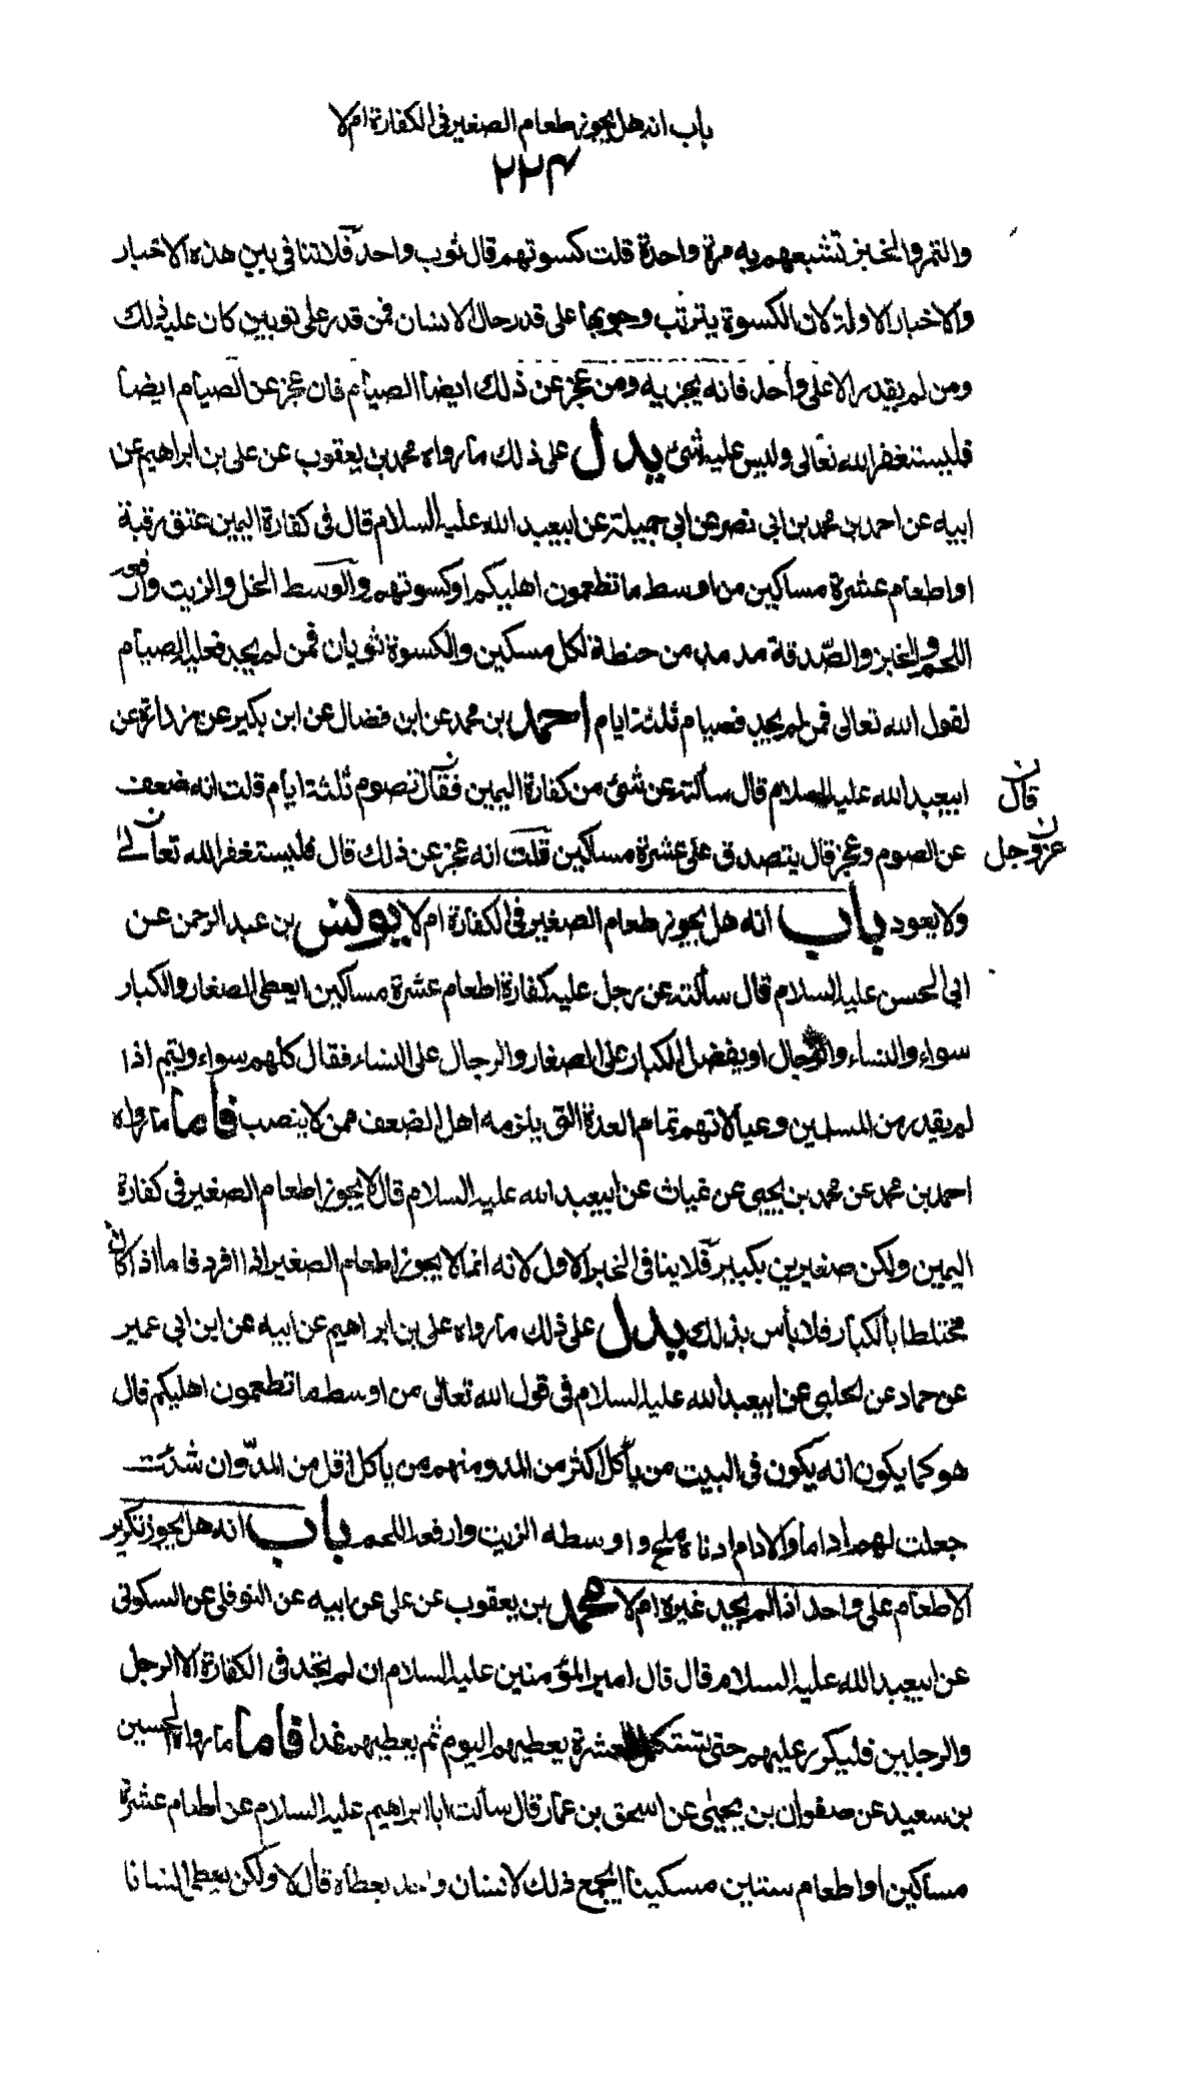 باب انه هل يجوز طعام الصغير فى الكفارة ام لا
۲۲۴
والتمر والخبز تشبعهم به مرة واحدة قلت كسوتهم قال ثوب واحد فلا تنافى بين هذه الاخبار
والاخبار الاولة لان الكسوة يترتب وجوبها على قدر حال الانسان فمن قدر على ثوبين كان عليه ذلك
ومن لم يقدر الا على واحد فانه يجزيه ومن عجز عن ذلك ايضا الصيام فان عجز عن الصيام ايضا
فليستغفر الله تعالى وليس عليه شئ يدل على ذلك ما رواه محمد بن يعقوب عن على بن ابراهيم عن
ابيه عن احمد بن محمد بن ابى نصر عن ابى جميلة عن ابيعبد الله عليه السلام قال فى كفارة اليمين عتق رقبة
او اطعام عشرة مساكين من اوسط ما تطعمون اهليكم او كسوتهم والوسط الخل والزيت وارفعه
اللحم والخبز والصدقة مد مد من حنطة لكل مسكين والكسوة ثوبان فمن لم يجد فعليه الصيام
لقول الله تعالى فمن لم يجد فصيام ثلثة ايام احمد بن محمد عن ابن فضال عن ابن بكير عن زرارة عن
ابيعبد الله عليه السلام قال سألته عن شئ من كفارة اليمين فقال تصوم ثلثة ايام قلت انه ضعف
قال ن
عن الصوم وعجز قال يتصدق على عشرة مساكين قلت انه عجز عن ذلك قال فليستغفر الله تعالى ن
عز وجل ن
ولا يعود باب انه هل يجوز طعام الصغير فى الكفارة ام لا يونس بن عبد الرحمن عن
ابى الحسن عليه السلام قال سألته عن رجل عليه كفارة اطعام عشرة مساكين ايعطى الصغار والكبار
سواء والنساء والرجال او يفضل الكبار على الصغار والرجال على النساء فقال كلهم سواء وليتم اذا
لم يقدر من المسلمين وعيالاتهم تمام العدة التى يلزمه اهل الضعف ممن لا ينصب فاما ما رواه
احمد بن محمد عن محمد بن يحيى عن غياث عن ابيعبد الله عليه السلام قال لا يجوز اطعام الصغير فى كفارة
اليمين ولكن صغيرين بكبير فلا ينافى الخبر الاول لانه انما لا يجوز اطعام الصغير اذا افرد فاما اذا كان
مختلطا بالكبار فلا بأس بذلك يدل على ذلك ما رواه على بن ابراهيم عن ابيه عن ابن ابى عمير
عن حماد عن الحلبى عن ابيعبد الله عليه السلام فى قول الله تعالى من اوسط ما تطعمون اهليكم قال
هو كما يكون انه يكون فى البيت من يأكل اكثر من المد ومنهم من يأكل اقل من المد وان شئت
جعلت لهم اداما والادام ادناه ملح واوسطه الزيت وارفعه اللحم باب انه هل يجوز تكرير
الاطعام على واحد اذا لم يجد غيره ام لا محمد بن يعقوب عن على عن ابيه عن النوفلى عن السكونى
عن ابيعبد الله عليه السلام قال قال امير المؤمنين عليه السلام ان لم يجد فى الكفارة الا الرجل
والرجلين فليكرر عليهم حتى يستكمل العشرة يعطيهم اليوم ثم يعطيهم غدا فاما ما رواه الحسين
بن سعيد عن صفوان بن يحيى عن اسحق بن عمار قال سألت ابا ابراهيم عليه السلام عن اطعام عشرة
مساكين او اطعام ستين مسكينا ايجمع ذلك لانسان واحد يعطاه قال لا ولكن يعطى انسانا